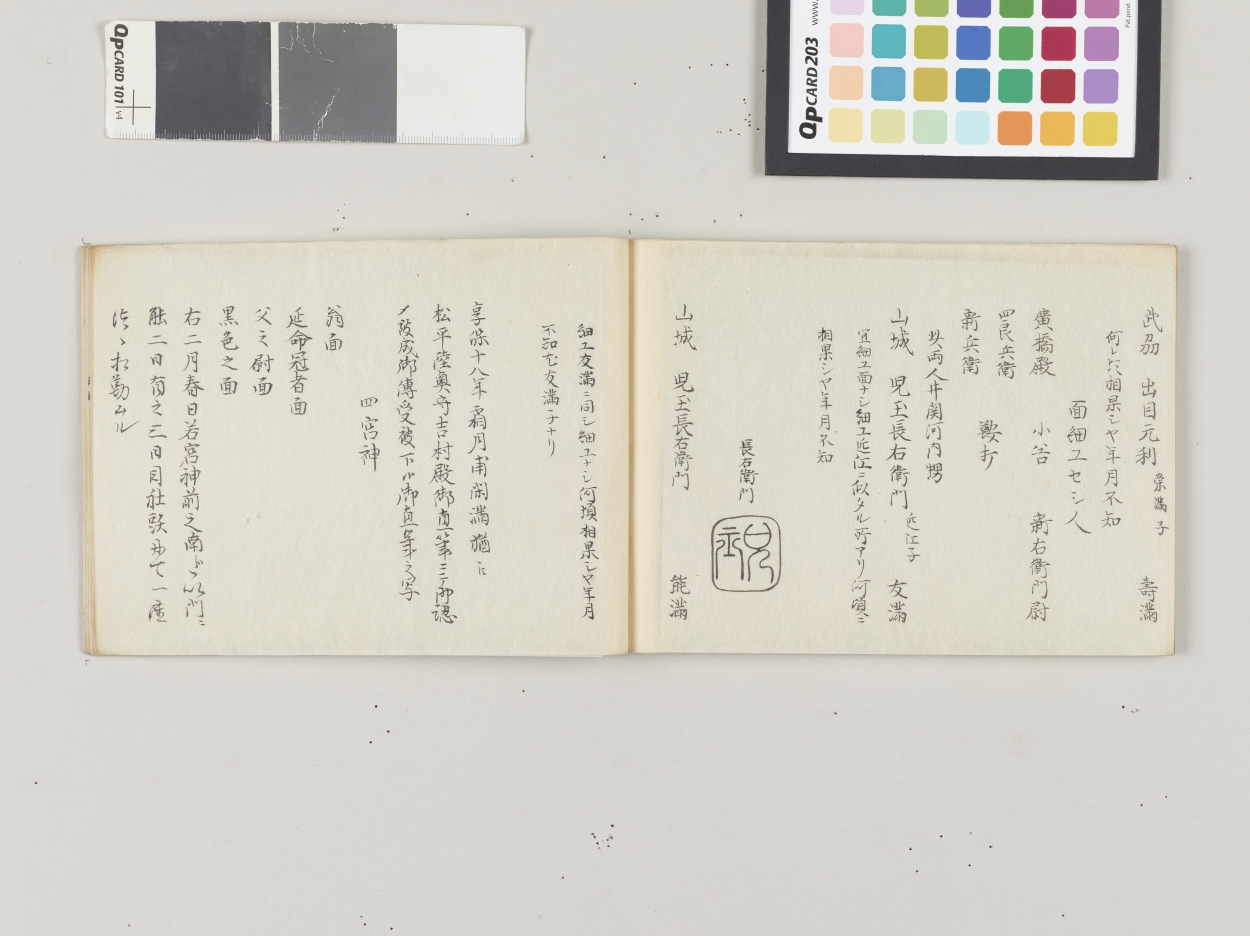 武刕 出目元利 栄満子 壽満
何レ 相果シヤ年月不知
面細工セシ人
廣橋殿 小
新右衛門尉
四良兵衛 鞍打
新兵衛
此両人井関河内甥
山城 児玉長右衛門 近江子 友満
宜細工面ナシ細工近江ニ似タル所アリ何頃ニ
相果シヤ年月不知
長右衛門
山城 児玉長右衛門 能満
細工友満ニ同シ細工ナシ何頃相果シヤ年月
不知 友満子ナリ
享保十八年霜月 満猶
松平陸奥守吉村殿御直筆ニテ御認
メ被成御傳受被下候御直筆之写
四宮神
翁面
延命冠者面
父之尉面
黒色之面
右二月春日若宮神前之南 門ニ
能二日有之三日目社頭 一座
相勤ムル
QPCARD 101
QPCARD 203
www.
Pat.pend.